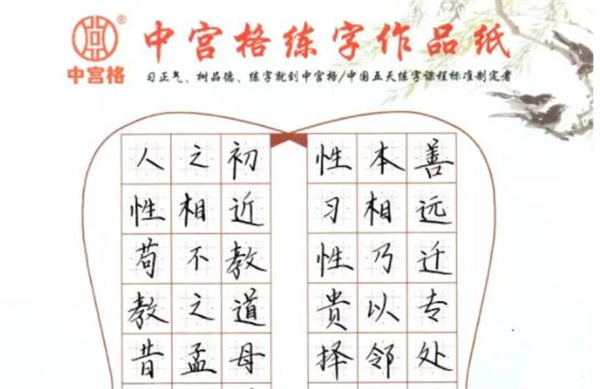 中宫格练字作品纸
中宫格
习正气、树品德、练字就到中宫格/中国五天练字课程标准制定者
人之初 性本善
性相近 习相远
苟不教 性乃迁
教之道 贵以专
昔孟母 择邻处